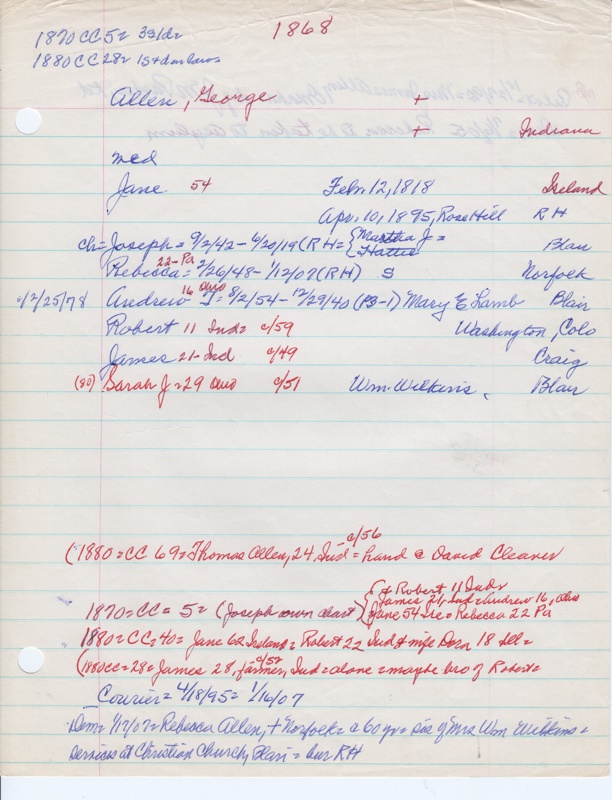 1868
1870 CC 5=
1880 CC 28=
Allen, George +
+ Indiana
med
Jane 54 Feb. 12, 1818 Ireland
Apr. 10, 1895, Rose Hill RH
ch= Joseph = 9/2/42 - 6/20/19 (RH = { Martha J = Blair
Hattie
22-Pa
Rebecca = 2/26/48 - 1/12/07 (RH) S Norfolk
16 Ohio
12/25/78 Andrew J = 8/2/54 - 12/29/40 (B-1) Mary E Lamb Blair
Robert 11 Ind= c/59 Washington, Colo
James 21-Ind c/49 Craig
(80) Sarah J = 29 Ohio c/51 Wm. Wilkins, Blair
c/56
(1880=CC 69= Thomas Allen, 24 Ind = hand @ David Cleaver
{ + Robert 11 Ind=
James 21, Ind = Andrew 16, Ohio
1870=CC= 5= (Joseph own chart) Jane 54 Ire = Rebecca 22 Pa
1880=CC=40= Jane 62 Ireland= Robert 22 Ind + wife Dora 18 Ill=
c/52
(1880CC=28= James 28, farmer, Ind=alone=maybe bro of Robert=
Courier= 4/18/95= 1/16/07
Dem= 1/12/07= Rebecca Allen, + Norfolk= @ 60 yr= sis of Mrs Wm Wilkins=
Services at Christian Church, Blair = bur RH